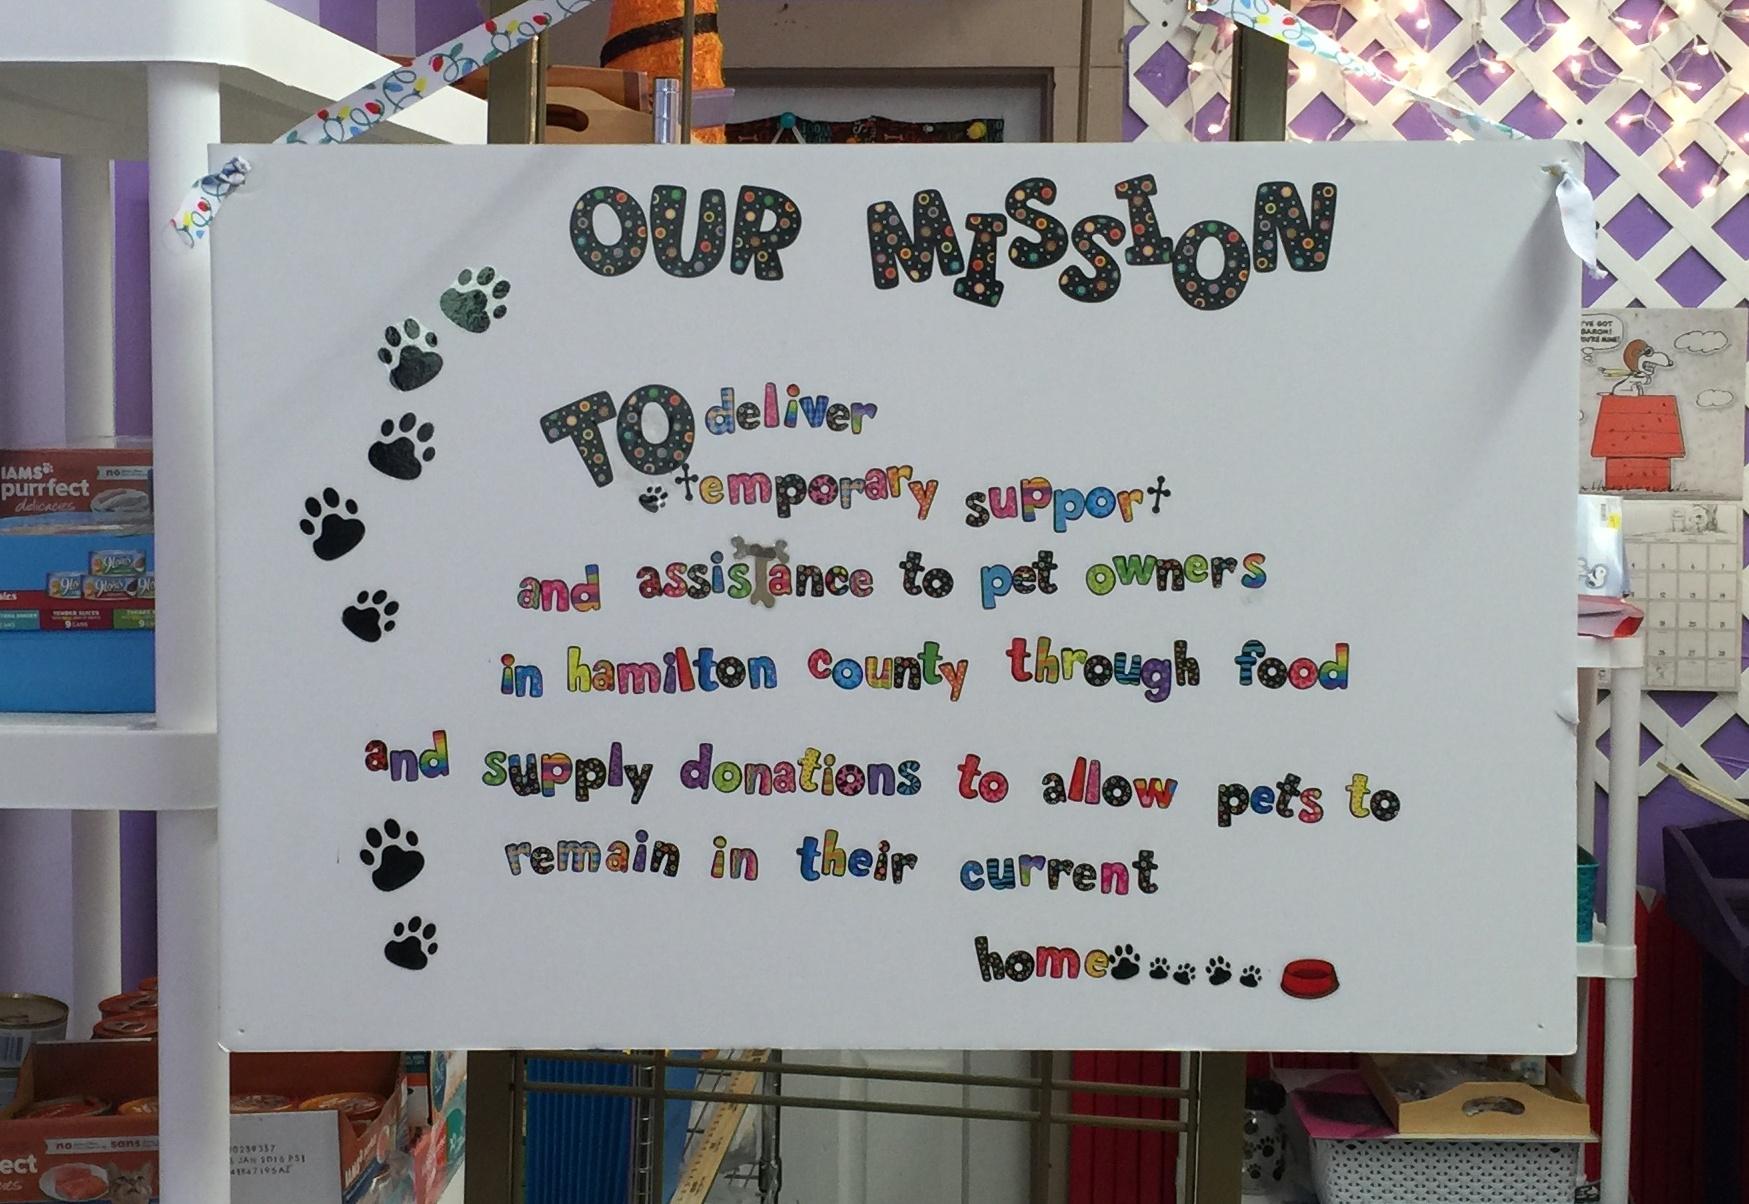 OUR MISSION
TO deliver
temporary support
and assisTance to pet owners
in hamilton county through food
and supply donations to allow pets to
remain in their current
home
IAMS
purrfect
delicacies
9Lives
TENDER SLICES
9 CANS
BARON!
no
sans
ect